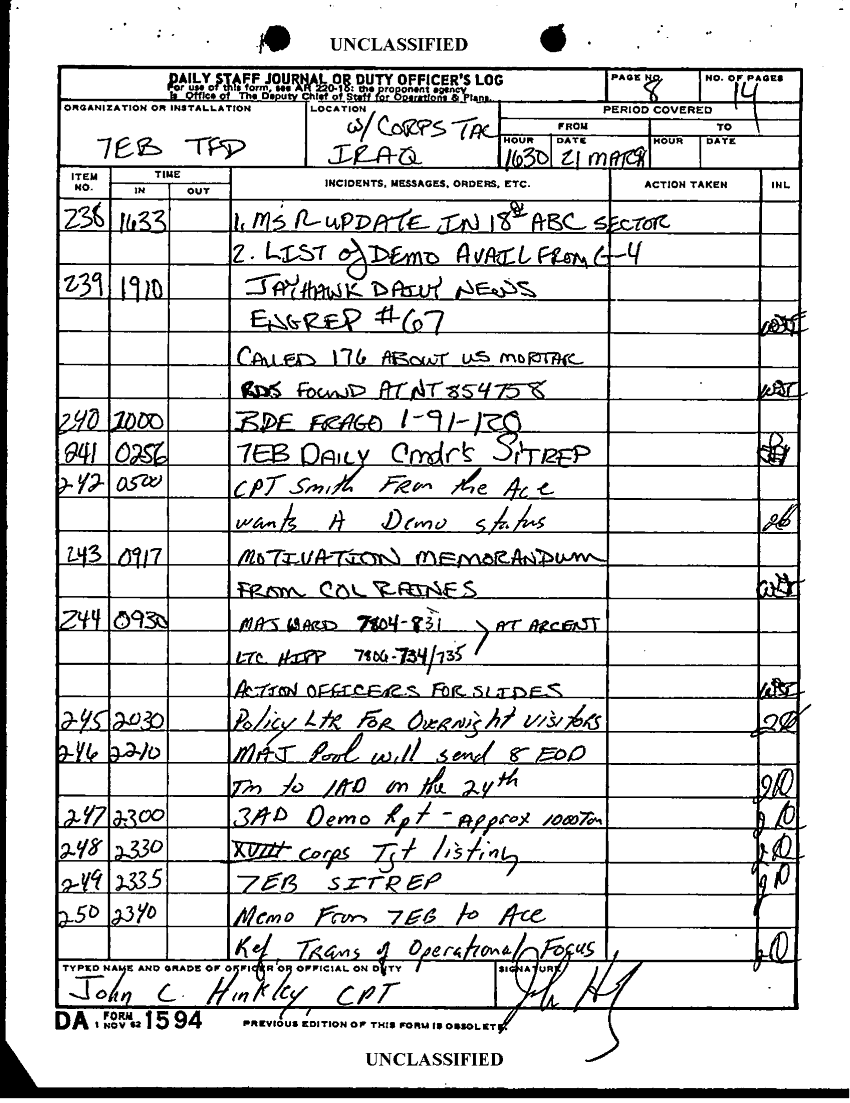 UNCLASSIFIED
DAILY STAFF JOURNAL OR DUTY OFFICER'S LOG
For use of this form, see AR 220-15; the proponent agency
is Office of The Deputy Chief of Staff for Operations & Plans.
PAGE NO. 8
NO. OF PAGES 14
ORGANIZATION OR INSTALLATION
7EB TFD
LOCATION
W/CORPS TAC
IRAQ
PERIOD COVERED
FROM TO
HOUR DATE HOUR DATE
1630 21 MARCH
ITEM NO. TIME IN OUT INCIDENTS, MESSAGES, ORDERS, ETC. ACTION TAKEN INL
238 1633 1. MSR UPDATE IN 18th ABC SECTOR
2. LIST of DEMO AVAIL FROM G-4
239 1910 JAYHAWK DAILY NEWS
ENGREP #67
CALLED 176 ABOUT US MORTAR
RDS FOUND AT NT 854758
240 2000 BDE FRAGO 1-91-120
241 0256 7EB DAILY Cmdr's SITREP
242 0500 CPT Smith From the Ace
wants A Demo status
243 0917 MOTIVATION MEMORANDUM
FROM COL RAINES
244 0930 MAJ WARD 7804-831 AT ARCENT
LTC HIPP 7806-734/735
ACTION OFFICERS FOR SLIDES
245 2030 Policy Ltr For Overnight visitors
246 2210 MAJ Pool will send 8 EOD
Tm to 1AD on the 24th
247 2300 3AD Demo Rpt - Approx 1000 Ton
248 2330 XVIII corps Tgt listing
249 2335 7EB SITREP
250 2340 Memo From 7EB to Ace
Ref Trans of Operational Focus
TYPED NAME AND GRADE OF OFFICER OR OFFICIAL ON DUTY
John C. Hinkley CPT
SIGNATURE
DA FORM 1 NOV 62 1594
PREVIOUS EDITION OF THIS FORM IS OBSOLETE.
UNCLASSIFIED